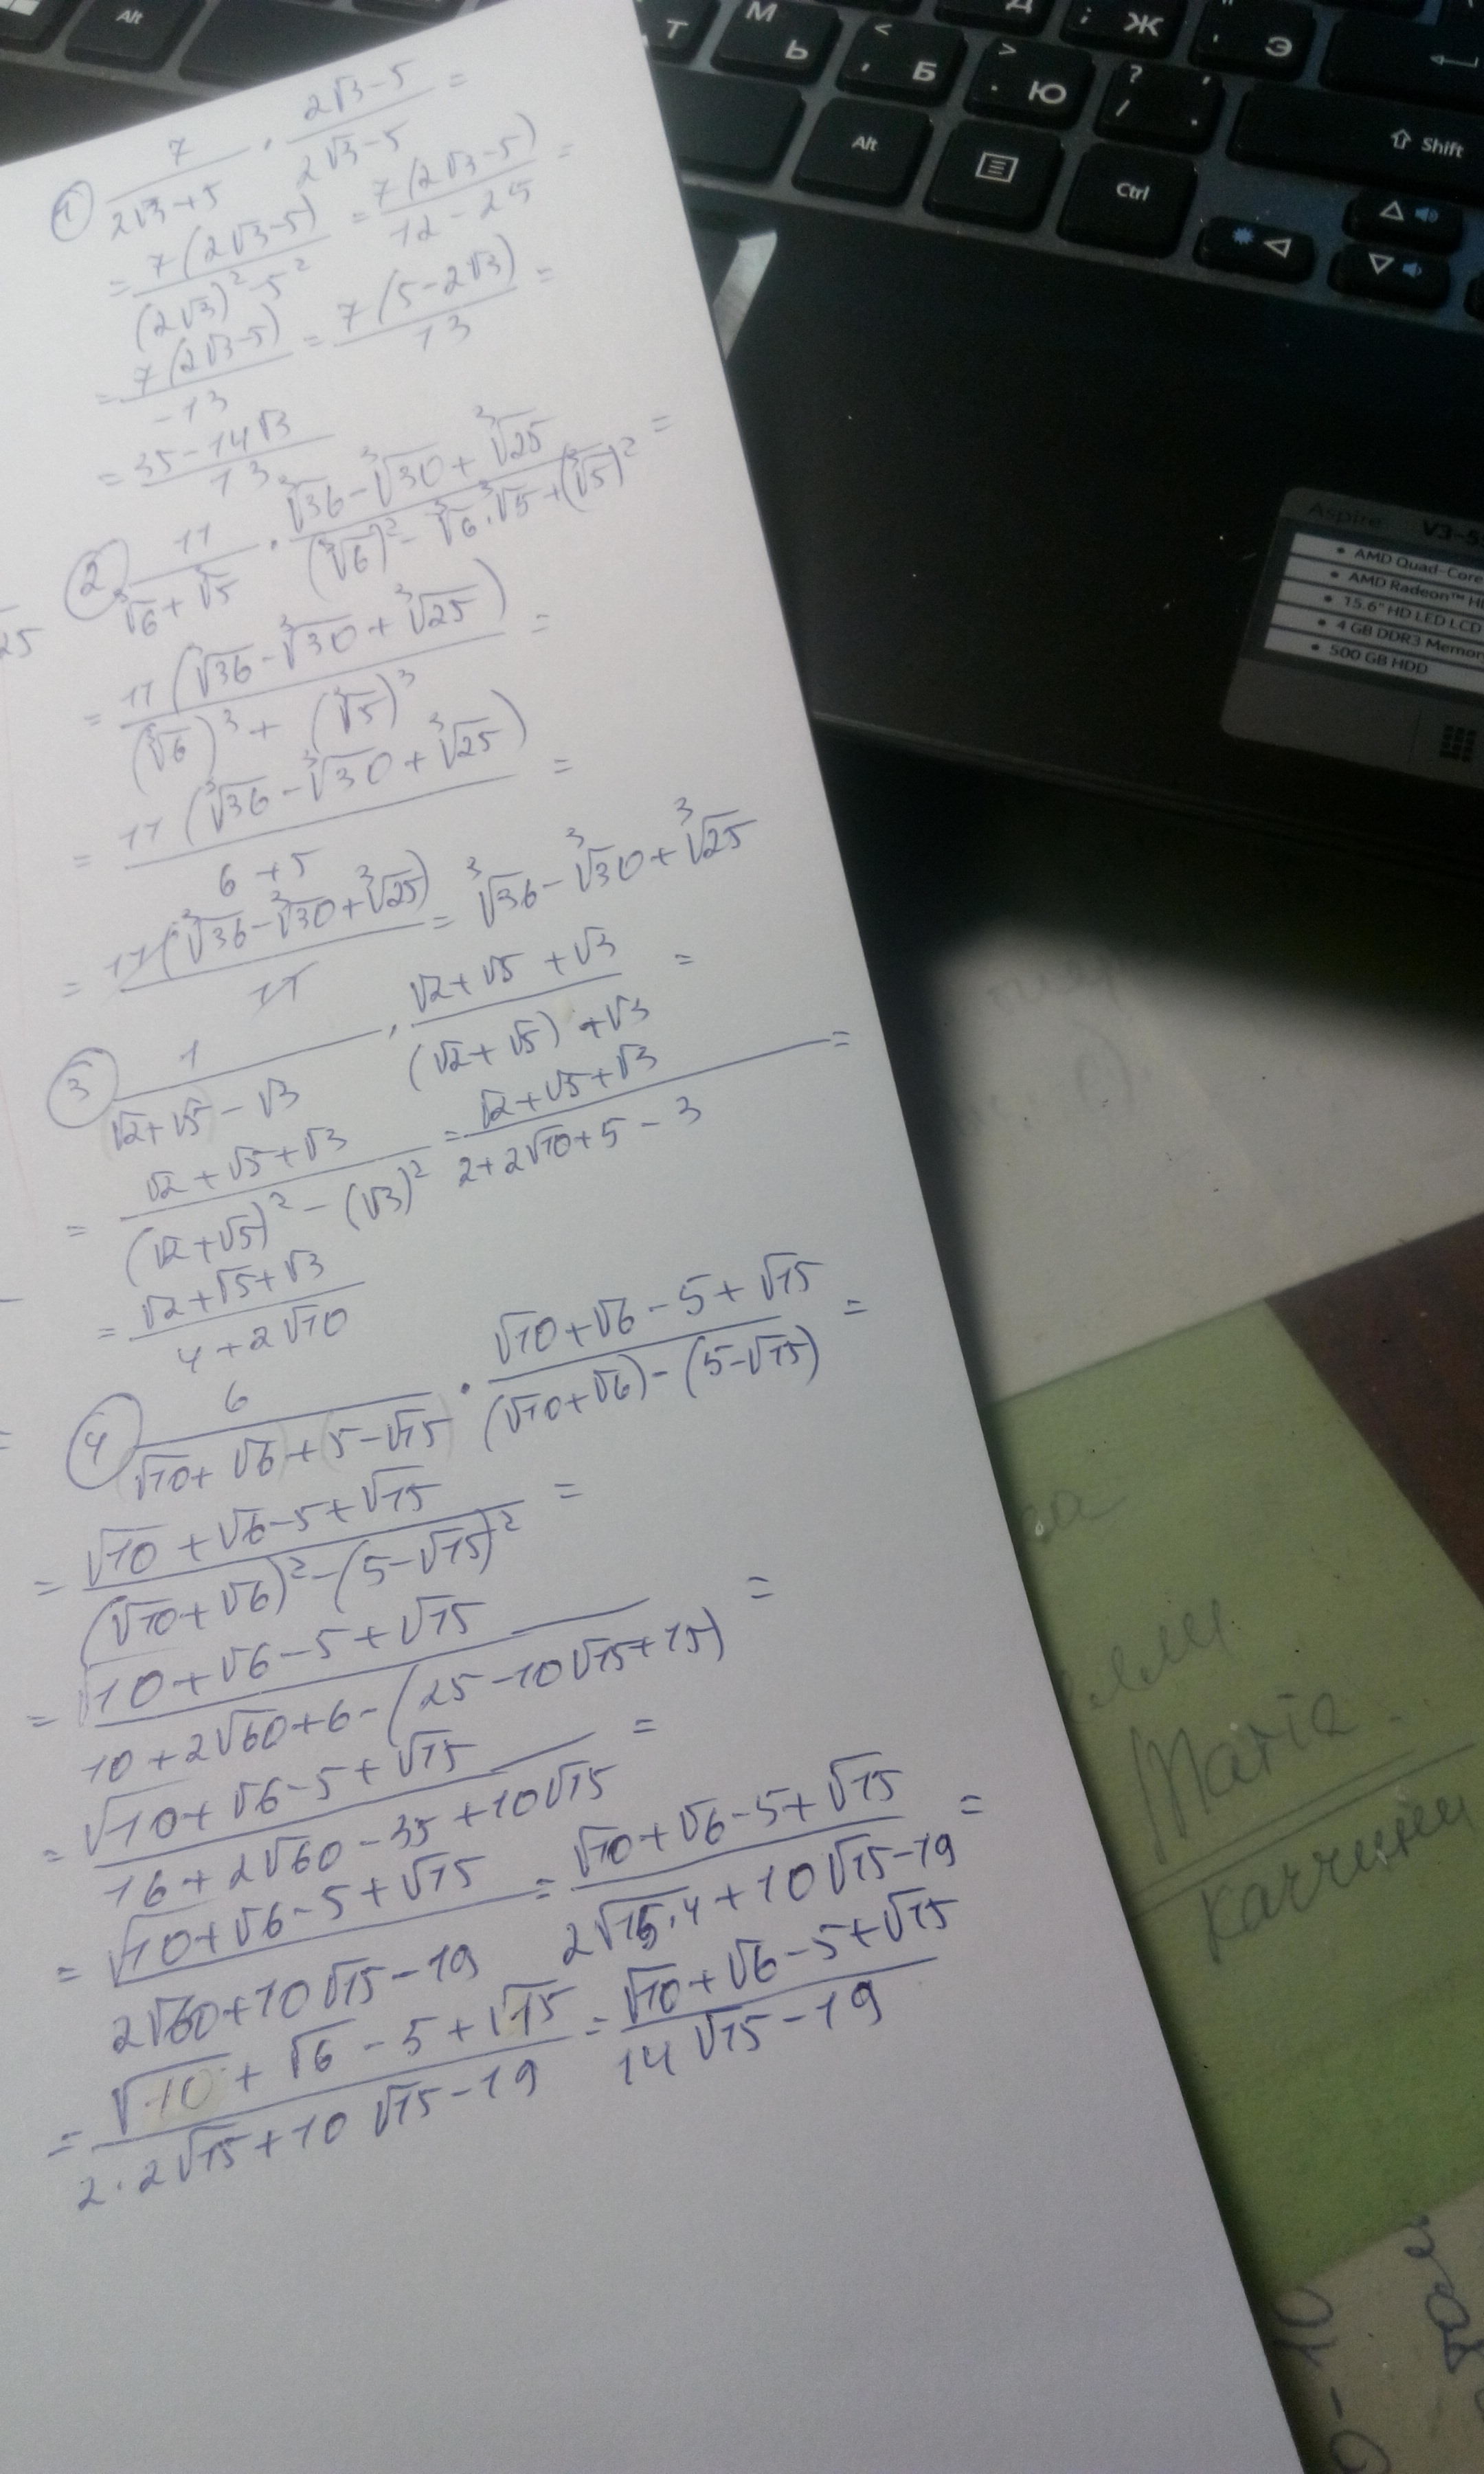 Alt
Т
М Ь
< , Б
> . Ю
: ; Ж
" ' Э
? / , .
Alt
Ctrl
⇧ Shift
① 7/(2√3+5) · (2√3-5)/(2√3-5) =
= 7(2√3-5)/((2√3)²-5²) = 7(2√3-5)/(12-25) =
= 7(2√3-5)/(-13) = 7(5-2√3)/13 =
= (35-14√3)/13
② 11/(∛6+∛5) · (∛36-∛30+∛25)/((∛6)²-∛6·∛5+(∛5)²) =
= 11(∛36-∛30+∛25)/((∛6)³+(∛5)³) =
= 11(∛36-∛30+∛25)/(6+5) =
= 11(∛36-∛30+∛25)/11 = ∛36-∛30+∛25
③ 1/(√2+√5-√3) · (√2+√5+√3)/((√2+√5)+√3) =
= (√2+√5+√3)/((√2+√5)²-(√3)²) = (√2+√5+√3)/(2+2√10+5-3) =
= (√2+√5+√3)/(4+2√10)
④ 6/(√10+√6+5-√15) · (√10+√6-5+√15)/((√10+√6)-(5-√15)) =
= (√10+√6-5+√15)/((√10+√6)²-(5-√15)²) =
= (√10+√6-5+√15)/(10+2√60+6-(25-10√15+15)) =
= (√10+√6-5+√15)/(16+2√60-35+10√15) =
= (√10+√6-5+√15)/(2√60+10√15-19) = (√10+√6-5+√15)/(2√15·4+10√15-19) =
= (√10+√6-5+√15)/(2·2√15+10√15-19) = (√10+√6-5+√15)/(14√15-19)
25
Aspire V3-5
• AMD Quad-Core
• AMD Radeon™ H
• 15.6" HD LED LCD
• 4 GB DDR3 Memor
• 500 GB HDD